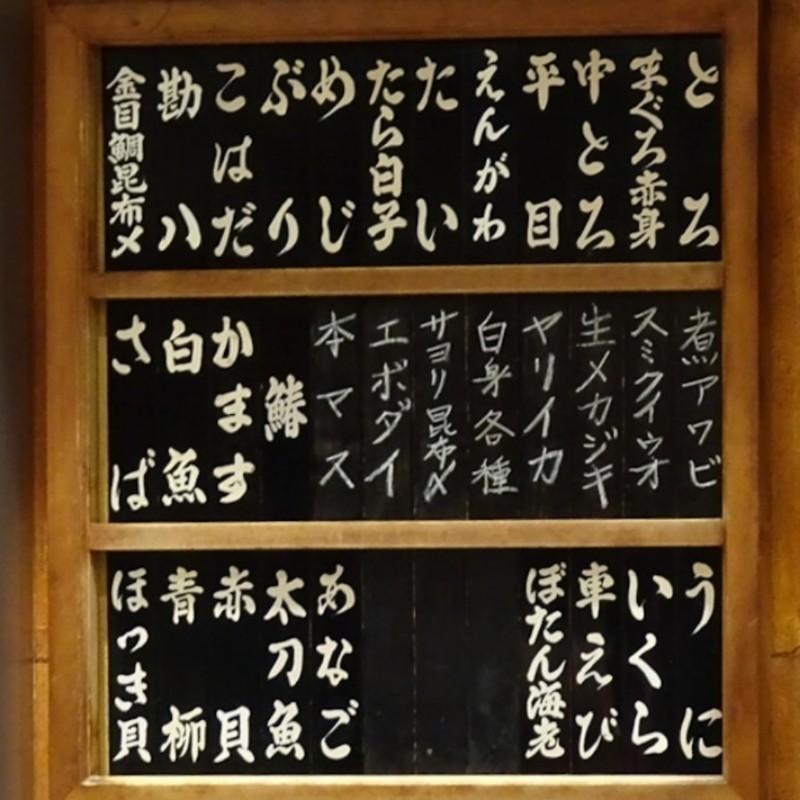 とろ
まぐろ赤身
中とろ
平目
えんがわ
たい
たら白子
めじ
ぶり
こはだ
勘八
金目鯛昆布〆
煮アワビ
スミクイウオ
生メカジキ
ヤリイカ
白身各種
サヨリ昆布〆
エボダイ
本マス
鰆
かます
白魚
さば
うに
いくら
車えび
ぼたん海老
あなご
太刀魚
赤貝
青柳
ほっき貝